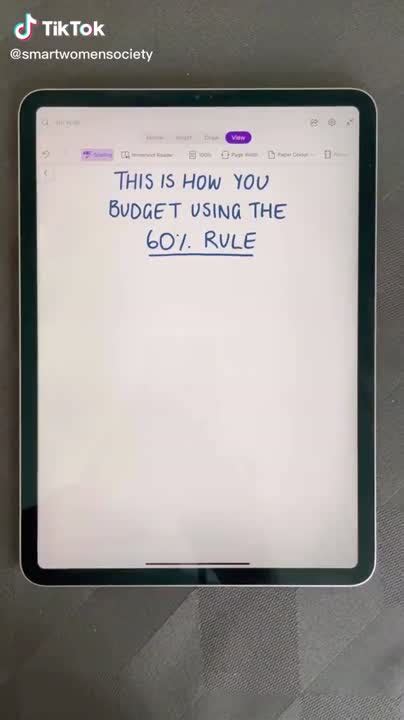 TikTok
@smartwomensociety
Home Insert Draw View
Spelling Immersive Reader 100% Page Width Paper Colour
THIS IS HOW YOU
BUDGET USING THE
60% RULE